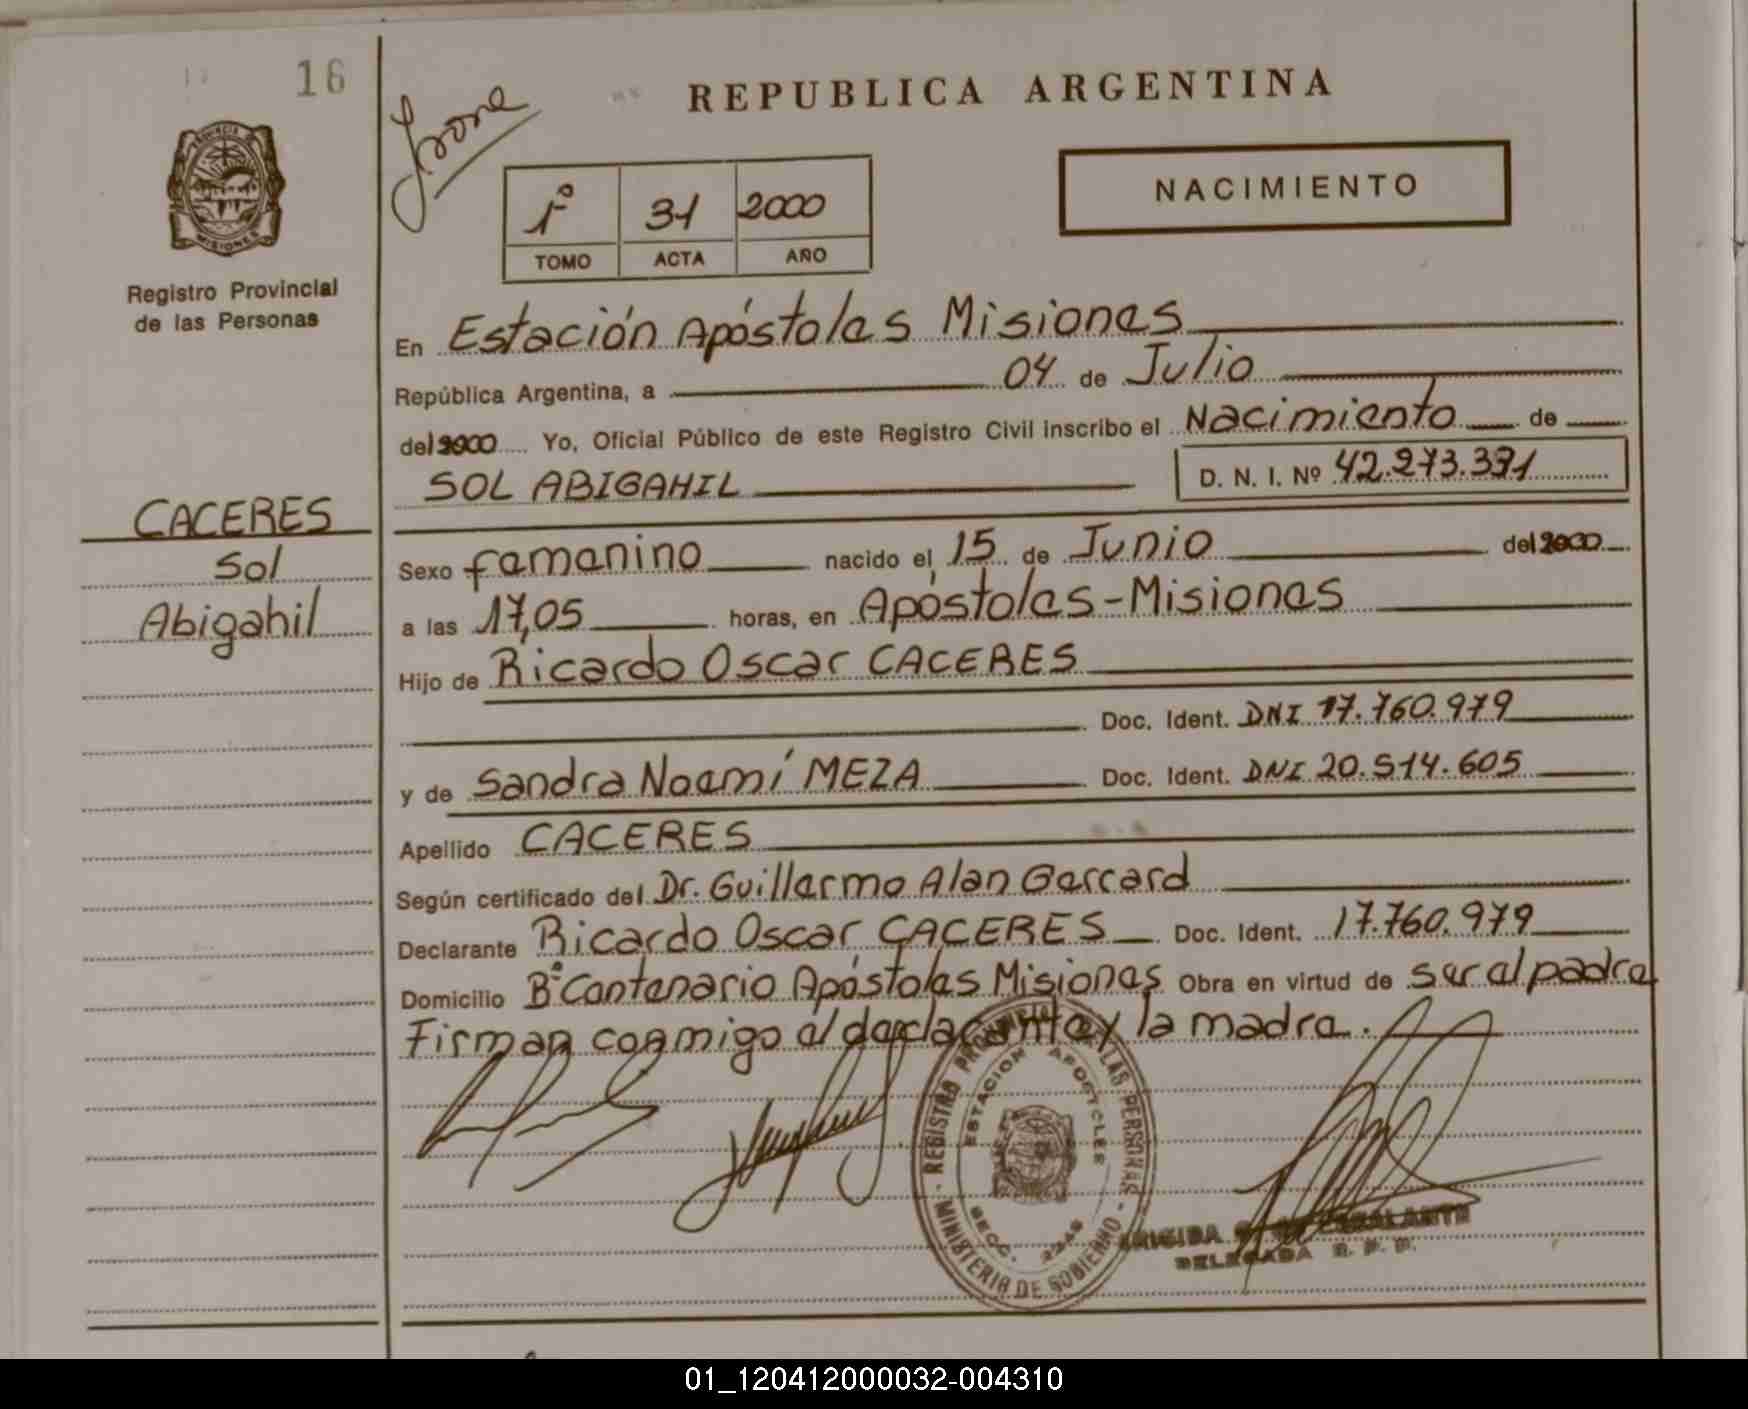 16
REPUBLICA ARGENTINA
NACIMIENTO
1º 31 2000
TOMO ACTA AÑO
PROVINCIA DE MISIONES
Registro Provincial
de las Personas
En Estación Apóstoles Misiones
República Argentina, a 04 de Julio
del 2000 Yo, Oficial Público de este Registro Civil inscribo el Nacimiento de
SOL ABIGAHIL D. N. I. Nº 42.273.331
CACERES
Sol
Abigahil
Sexo femenino nacido el 15 de Junio del 2000
a las 17,05 horas, en Apóstoles - Misiones
Hijo de Ricardo Oscar CACERES
Doc. Ident. DNI 17.760.979
y de Sandra Noemí MEZA Doc. Ident. DNI 20.514.605
Apellido CACERES
Según certificado del Dr. Guillermo Alan Gerrard
Declarante Ricardo Oscar CACERES Doc. Ident. 17.760.979
Domicilio Bº Centenario Apóstoles Misiones Obra en virtud de ser el padre
Firman conmigo el declarante y la madre.
REGISTRO PROVINCIAL DE LAS PERSONAS - MINISTERIO DE GOBIERNO -
ESTACION APOSTOLES
SECC.
ESCALANTE
DELEGADA R. P. P.
01_120412000032-004310